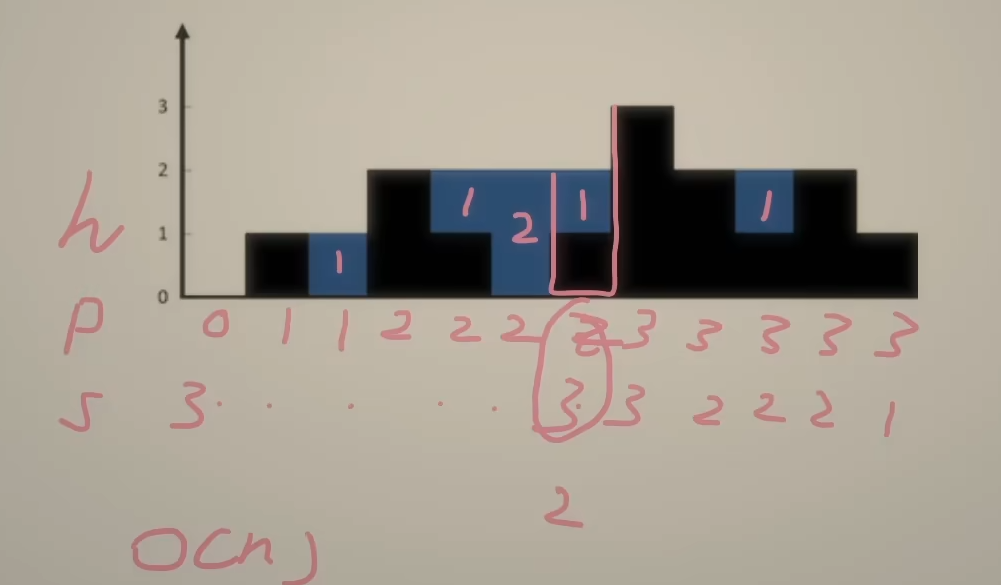 3
2
1
0
1 1 1
1 2
h
P 0 1 1 2 2 2 3 3 3 3 3
S 3 . . . . . 3 3 2 2 2 1
2
O(n)